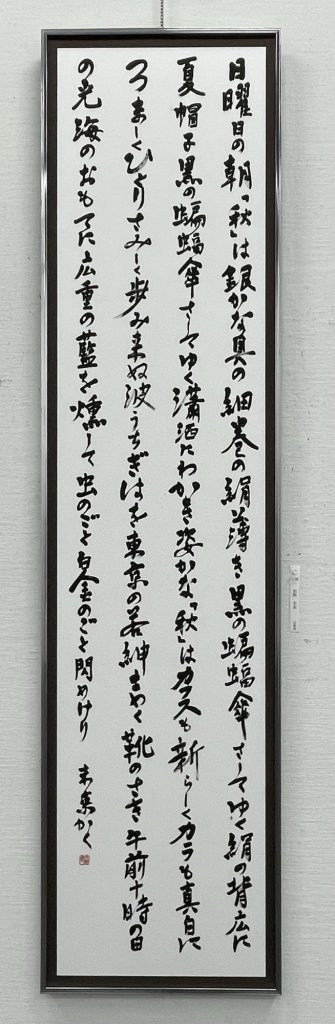 日曜日の朝「秋」は銀かな具の細巻の絹薄き黒の蝙蝠傘さしてゆく絹の背広に
夏帽子黒の蝙蝠傘さしてゆく瀟洒にわかき姿かな「秋」はカフスも新らしくカラも真白に
つゝましくひとりさみしく歩み来ぬ波うちぎはを東京の若紳士めく靴のさき午前十時の日
の光海のおもてに広重の藍を燻して虫のごと白金のごと閃めけり 未来かく